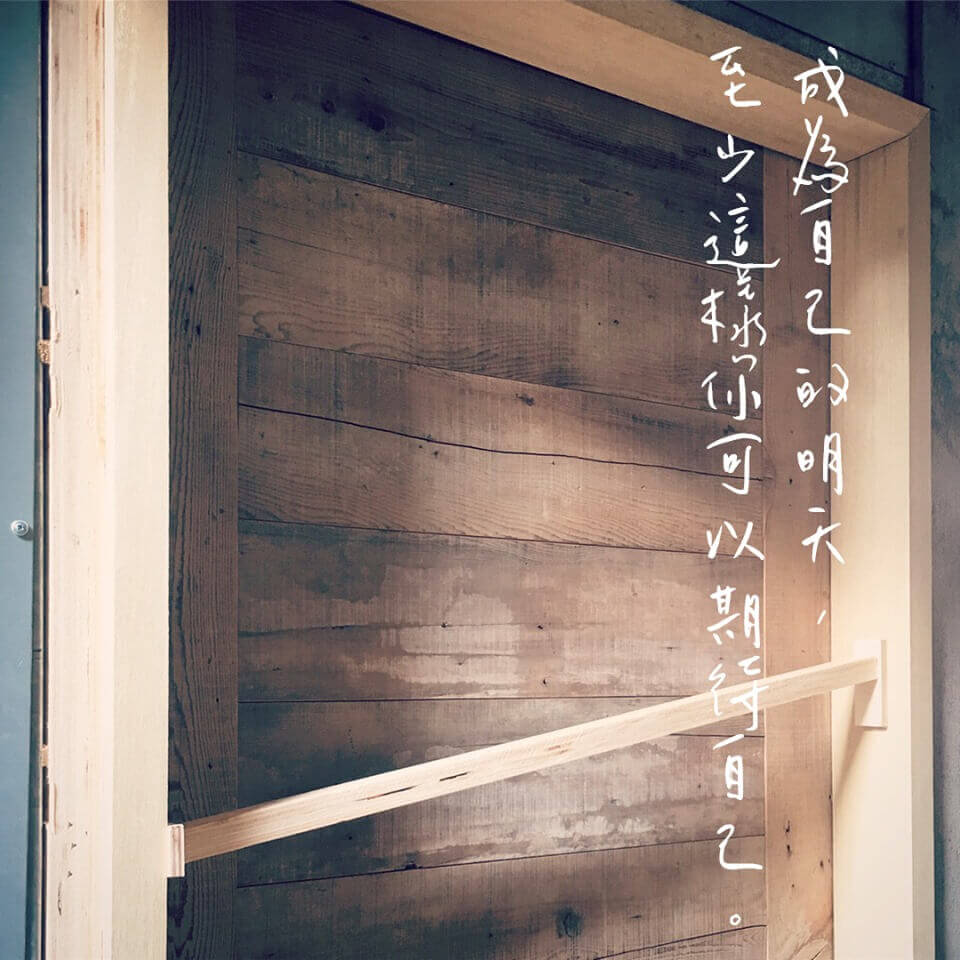 成為自己的明天，
至少這樣你可以期待自己。